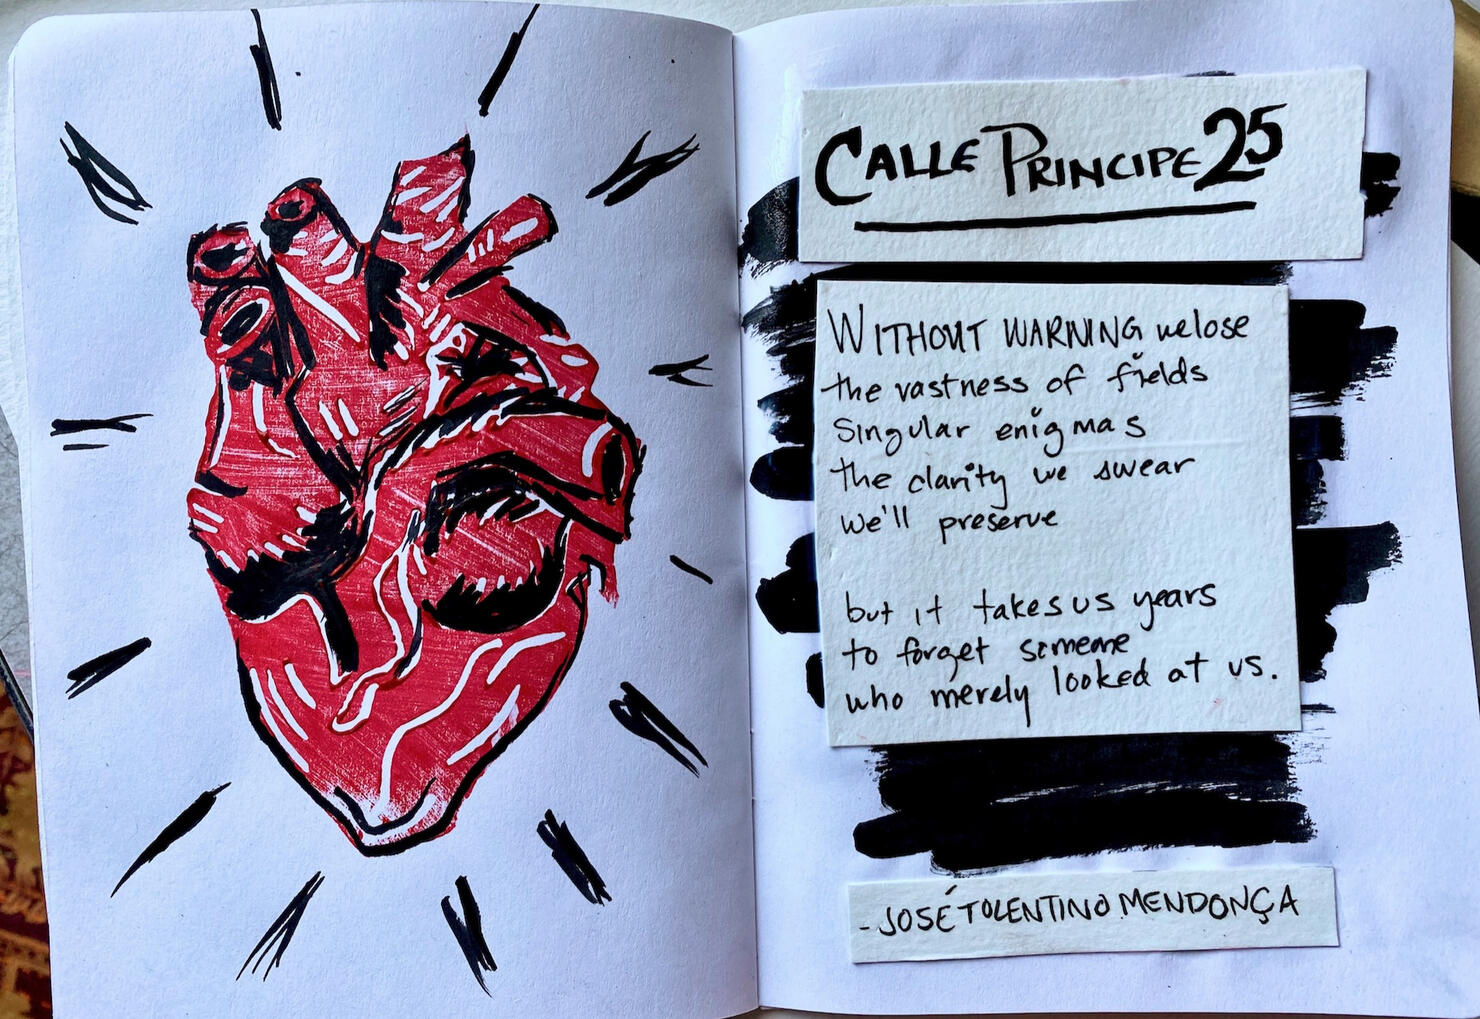 CALLE PRINCIPE 25
WITHOUT WARNING we lose
the vastness of fields
singular enigmas
the clarity we swear
we'll preserve
but it takes us years
to forget someone
who merely looked at us.
- JOSÉ TOLENTINO MENDONÇA